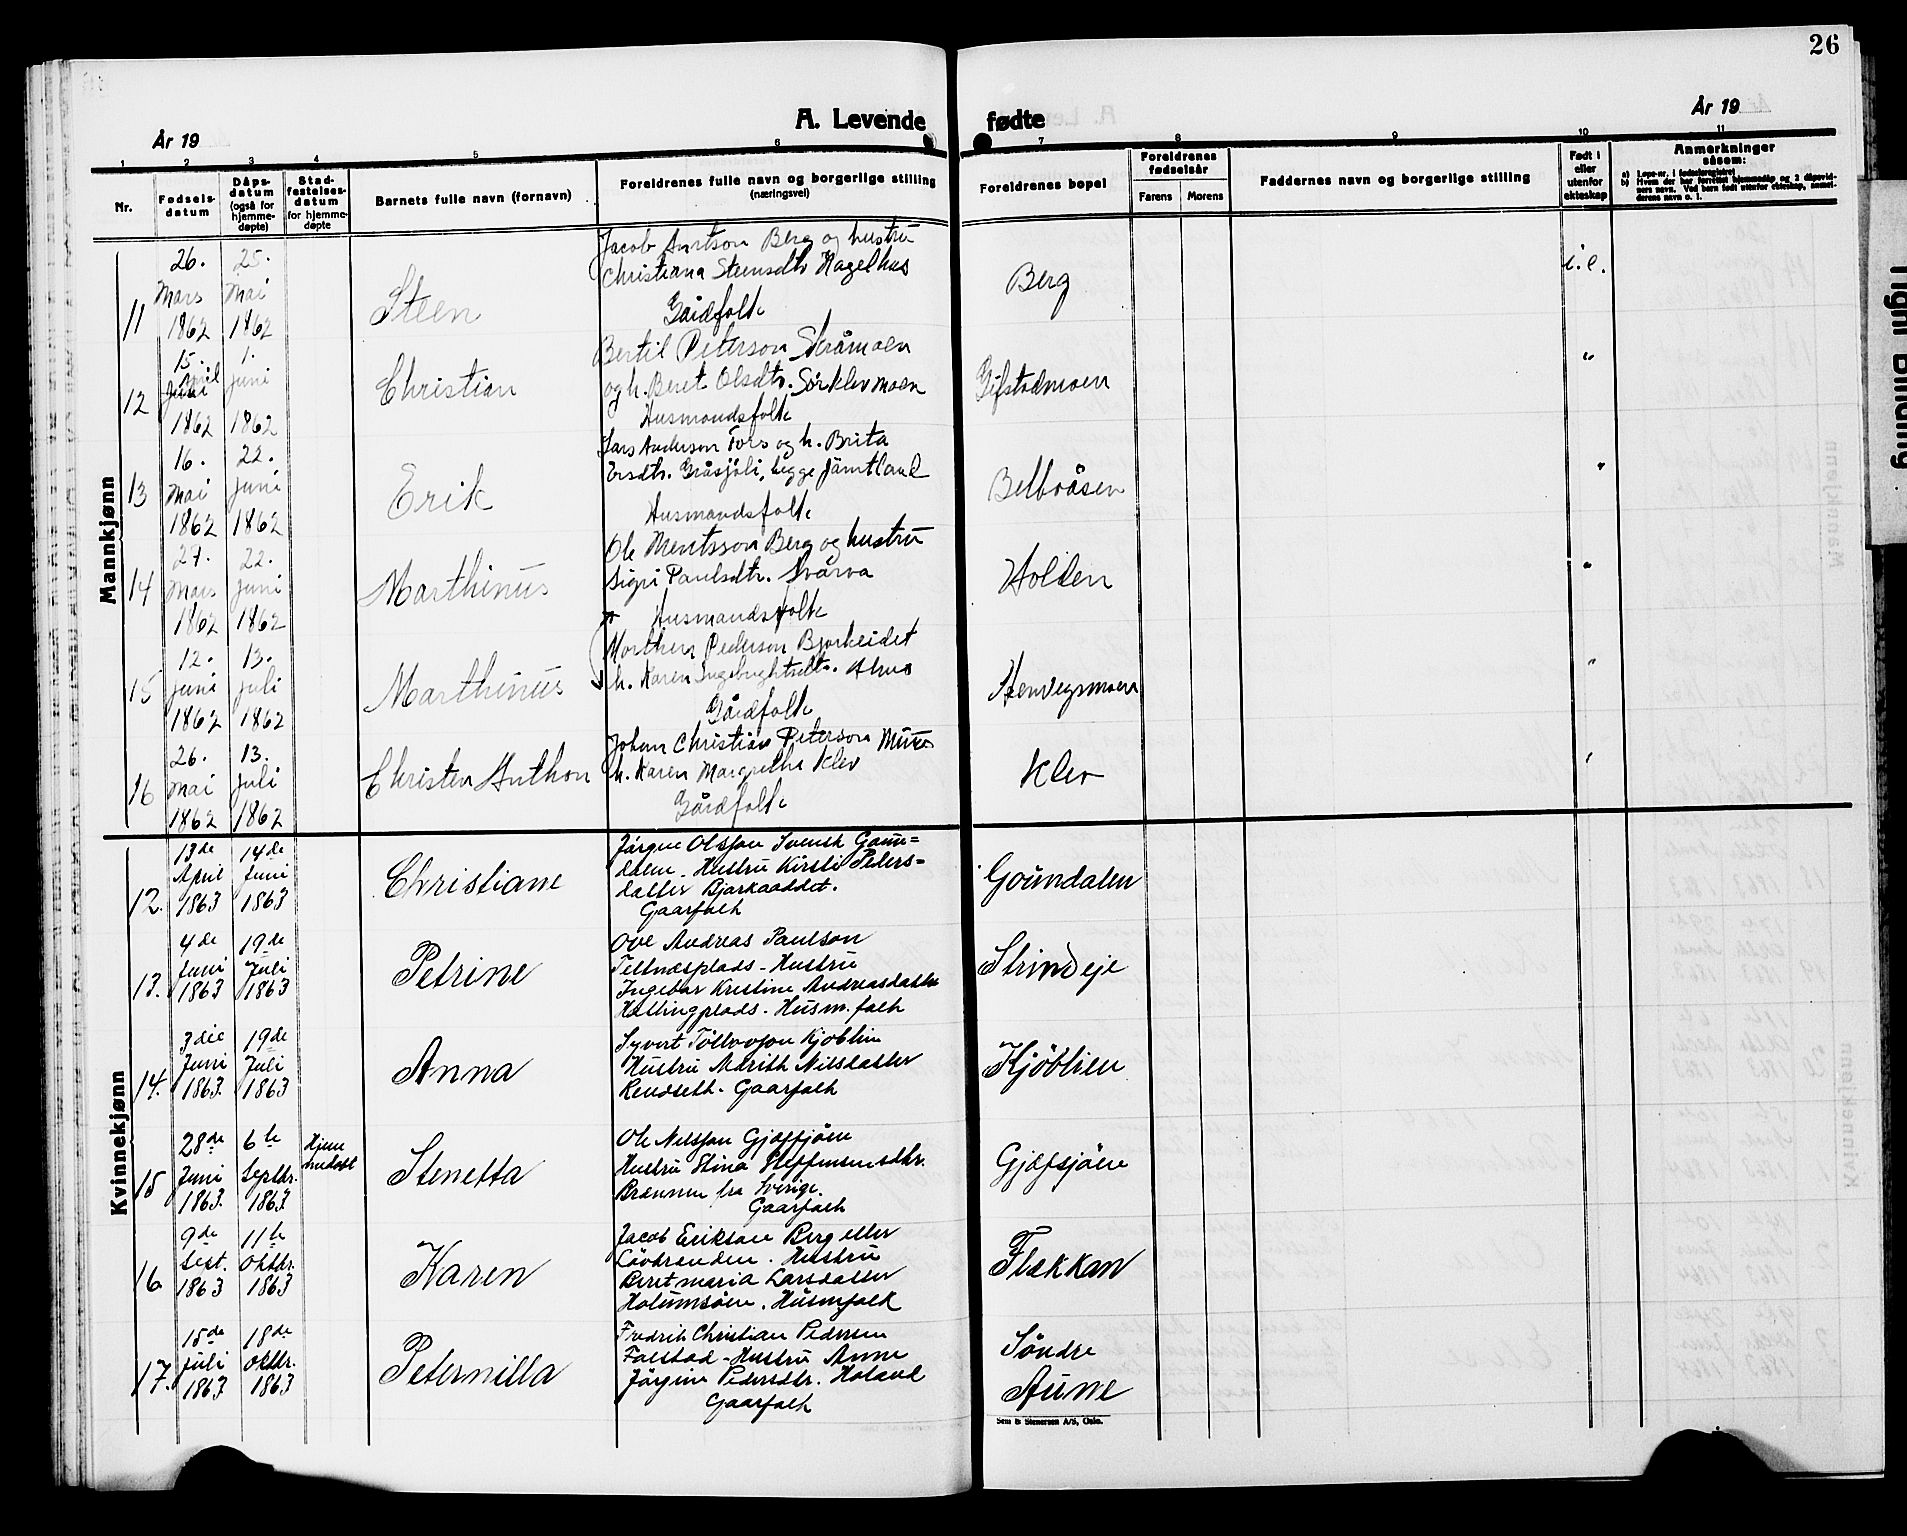 26
A. Levende fødte
År 19
År 19
1 2 3 4 5 6 7 8 9 10 11
Nr.
Fødsels-
datum
Dåps-
datum
(også for
hjemme-
døpte)
Stad-
festelses-
datum
for hjemme-
døpte
Barnets fulle navn (fornavn)
Foreldrenes fulle navn og borgerlige stilling
(næringsvei)
Foreldrenes bopel
Foreldrenes
fødselsår
Farens Morens
Faddernes navn og borgerlige stilling
Født i
eller
utenfor
ekteskap
Anmerkninger
såsom:
a) Løpe-nr. i fødselsregistret
b) Hvem der har forrettet hjemmedåp og 2 dåpsvid-
ners navn. Ved barn født utenfor ekteskap, anmel-
derens navn o. l.
Mannkjønn
11
26.
Mars
1862
25.
Mai
1862
Steen
Jacob Arntson Berg og hustru
Christiana Steensdtr Hagelhus
Gårdfolk
Berg
i.e.
12
15.
April
1862
1.
Juni
1862
Christian
Bertil Peterson Skråmoen
og h. Beret Olsdtr. Sörklevmoen
Husmandsfolk
Gifstadmoen
"
13
16.
Mai
1862
22.
Juni
1862
Erik
Lars Anderson Fors og h. Brita
Ersdtr. Gråsjöli, begge Jämtland
Husmandsfolk
Belbråsen
"
14
27.
Mars
1862
22.
Juni
1862
Marthinus
Ole Mentsson Berg og hustru
Sigri Paulsdtr. Svarva
Husmandsfolk
Holden
"
15
12.
Juni
1862
13.
Juli
1862
Marthinus
Morthen Pederson Bjorkeidet
h. Karen Ingebrightsdtr. Ahus
Gårdfolk
Stenvegsmoen
"
16
26.
Mai
1862
13.
Juli
1862
Christen Anthon
Johan Christian Peterson
h. Karen Margrethe Klev
Gårdfolk
Klev
"
Kvinnekjønn
12.
13de
April
1863
14de
Juni
1863
Christiane
Jörgine Olsson Svensk Gaun=
dalen. Hustru Kirsti Peders=
datter Bjarkaaddet.
Gaarfolk
Goundalen
13.
4de
Juni
1863
19de
Juli
1863
Petrine
Ove Andreas Paulson
Feltnæsplads - Hustru
Ingebor Kristine Andreasdatter
Hallingplads. Husm.folk
Strindeje
14.
3die
Juni
1863.
19de
Juli
1863
Anna
Syvert Tollovson Kjoblin
Hustru Marith Nilsdatter
Rendseth. Gaarfolk
Kjöblien
15
28de
Juni
1863.
6te
Septbr.
1863
Stenetta
Ole Nilsson Gjæfsjöen
Hustru Stina Steffensensdtr.
Brænnen fra Sverige.
Gaarfolk
Gjæfsjöen
16
9de
Sept.
1863
11te
Oktbr.
1863
Karen
Jacob Erikson Berg eller
Lövdranden. Hustru
Beretmaria Larsdatter
Holumsöen. Husmfolk
Flækkan
17.
15de
Juli
1863
18de
Oktbr.
1863
Peternilla
Fredrik Christian Pedersen
Falstad - Hustru Anne
Jörgine Pedersdtr. Holand
Gaarfolk
Söndre
Aune
Sem & Stenersen A/S, Oslo.